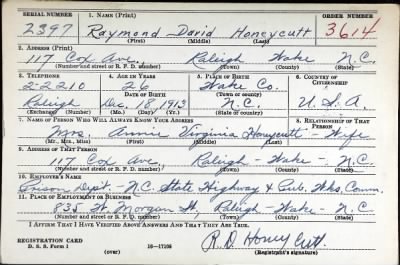 SERIAL NUMBER 1. NAME (Print) ORDER NUMBER
2397 Raymond David Honeycutt 3614
(First) (Middle) (Last)
2. ADDRESS (Print)
117 Cox Ave. Raleigh Wake N.C.
(Number and street or R. F. D. number) (Town) (County) (State)
3. TELEPHONE 4. AGE IN YEARS 5. PLACE OF BIRTH 6. COUNTRY OF CITIZENSHIP
2-2210 26 Wake Co.
DATE OF BIRTH (Town or county)
Raleigh Dec. 18, 1913 N.C. U.S.A.
(Exchange) (Number) (Mo.) (Day) (Yr.) (State or country)
7. NAME OF PERSON WHO WILL ALWAYS KNOW YOUR ADDRESS 8. RELATIONSHIP OF THAT PERSON
Mrs. Annie Virginia Honeycutt - Wife
(Mr., Mrs., Miss) (First) (Middle) (Last)
9. ADDRESS OF THAT PERSON
117 Cox Ave. Raleigh - Wake - N.C.
(Number and street or R. F. D. number) (Town) (County) (State)
10. EMPLOYER'S NAME
Prison Dept. - N.C. State Highway & Pub. Wks. Comm.
11. PLACE OF EMPLOYMENT OR BUSINESS
835 W. Morgan St. Raleigh - Wake - N.C.
(Number and street or R. F. D. number) (Town) (County) (State)
I AFFIRM THAT I HAVE VERIFIED ABOVE ANSWERS AND THAT THEY ARE TRUE.
REGISTRATION CARD R. D. Honeycutt
D. S. S. Form 1 16-17105 (Registrant's signature)
(over)